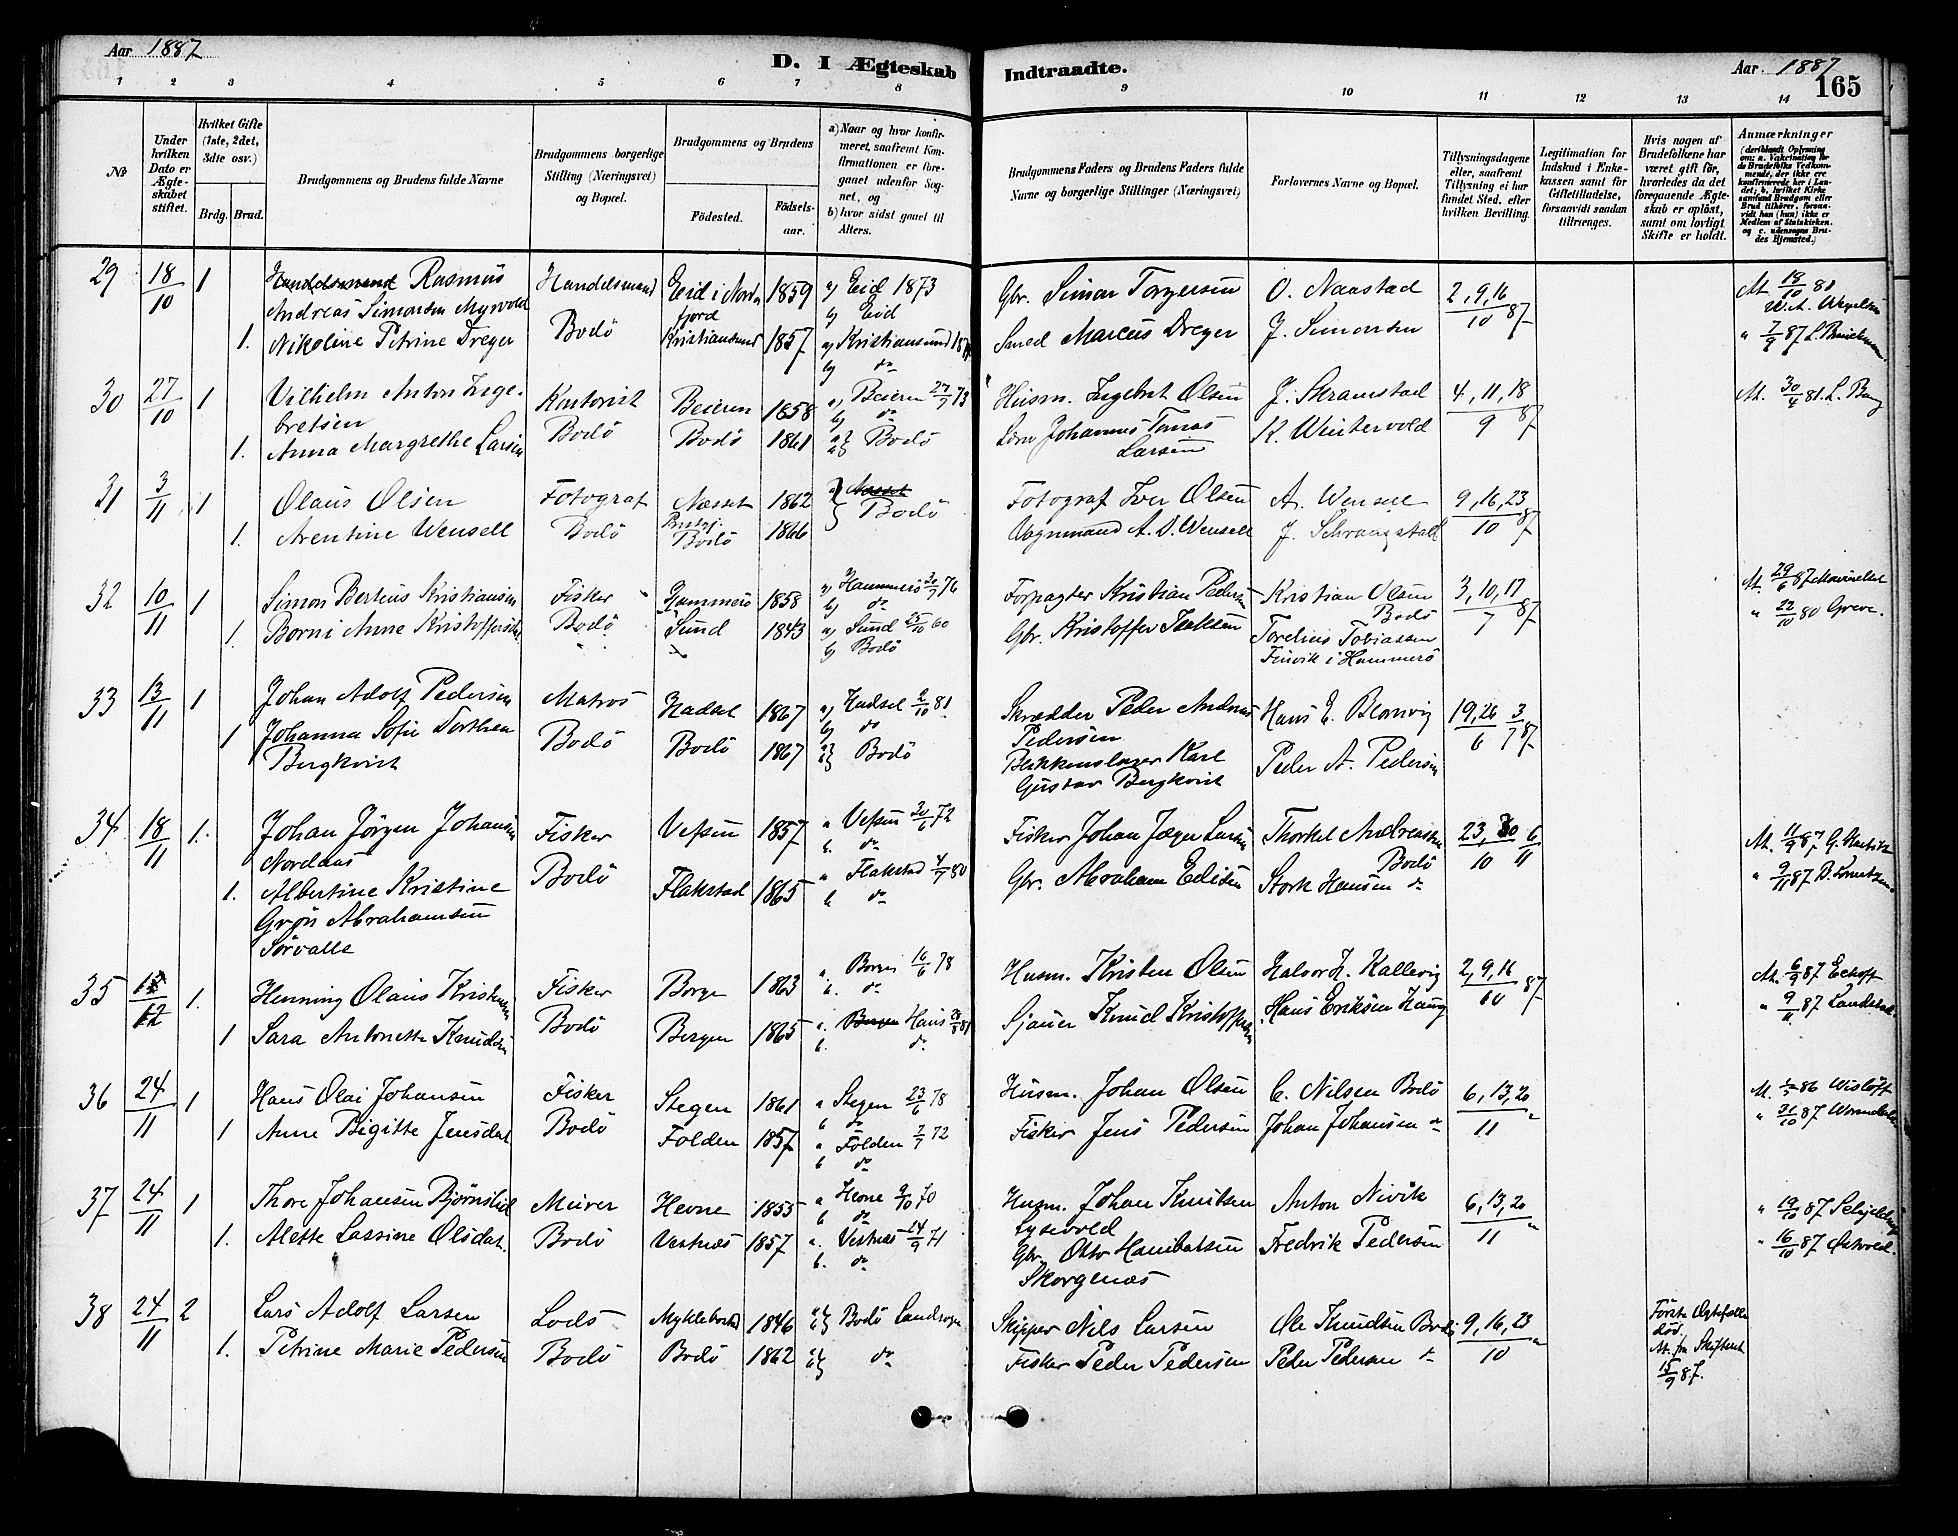 Aar 1887
D. I Ægteskab Indtraadte.
Aar 1887
165
1 2 3 4 5 6 7 8 9 10 11 12 13 14
No
Under hvilken Dato er Ægteskabet stiftet.
Hvilket Gifte (1ste, 2det, 3dte osv.)
Brdg. Brud.
Brudgommens og Brudens fulde Navne
Brudgommens borgerlige Stilling (Næringsvei) og Bopæl.
Brudgommens og Brudens
Födested.
Födselsaar.
a) Naar og hvor konfirmeret, saafremt Konfirmationen er foregaaet udenfor Sognet, og
b) hvor sidst gaaet til Alters.
Brudgommens Faders og Brudens Faders fulde Navne og borgerlige Stillinger (Næringsvei)
Forlovernes Navne og Bopæl.
Tillysningsdagene eller, saafremt Tillysning ei har fundet Sted, efter hvilken Bevilling.
Legitimation for Indskud i Enkekassen samt for Giftetilladelse, forsaavidt saadan tiltrænges.
Hvis nogen af Brudefolkene har været gift før, hvorledes da det foregaaende Ægteskab er opløst, samt om lovligt Skifte er holdt.
Anmærkninger
29 18/10 1 Handelsmand Rasmus Andreas Simonsen Myrvold Handelsmand Eeid i Nordfjord 1859 a) Eid 1873 b) Eid Gbr. Simon Torgersen O. Naastad 2,9,16/10 87 At. 18/10 80
1. Nikoline Petrine Dreyer Bodö Kristiansund 1857 a) Kristiansund b) do Smed Marcus Dreyer J. Simonsen
30 27/10 1 Vilhelm Anton Ingebretsen Kontorist Beieren 1858 a) Beieren 27/7 73 b) do Husm. Ingebret Olsen J. Skramstad 4,11,18/9 87 At. 30/4 81 L. Bang
1. Anna Margrethe Larsen Bodö Bodö 1861 Bodö Johannes Tomas Larsen K. Wintervold
31 3/11 1 Olaus Olsen Fotograf Næsset 1862 Næsset Bodö Fotograf Iver Olsen A. Wensell 9,16,23/10 87
1. Arentine Wensell Bodö Bodö 1866 Vognmand A. D. Wensell J. Schrangstad
32 10/11 1 Simon Bertius Kristiansen Fisker Hammerö 1858 a) Hammerö 76 b) do Forpagter Kristian Pedersen Kristian Olsen Bodö 3,10,17/7 87 At. 29/6 87
1. Borni Anne Kristoffersdat Bodö Sund 1843 a) Sund 25/10 60 b) Bodö Gbr. Kristoffer Isaksen Torelius Tobiassen Finvik i Hammerö " 22/10 80 Greve.
33 13/11 1 Johan Adolf Pedersen Matros Hadsel 1867 a) Hadsel 2/10 81 b) do Skrædder Peder Andreas Pedersen Hans E. Blomvig 19,26/6 3/7 87
1 Johanna Sofie Dorthea Bergkvist Bodö Bodö 1867 Bodö Blikkenslager Karl Gustav Bergkvist Peder A. Pedersen
34 18/11 1. Johan Jörgen Johansen Nordaas Fisker Vefsen 1857 a Vefsen 30/6 72 b. do Fisker Johan Jæger Larsen Thorkel Andreassen Bodö 23,30/10 6/11 At. 11/9 87
1. Albertine Kristine Grön Abrahamsen Sörvalle Bodö Flakstad 1865 a Flakstad 4/7 80 b do Gbr. Abraham Edisen Stork Hansen do " 9/11 87
35 12 1. Henning Olaus Kristensen Fisker Borge 1863 a. Borge 16/6 78 b. do Husm. Kristen Olsen Halvor H. Kallevig 2,9,16/10 87 At. 6/9 87
1 Sara Antonette Knudsen Bodö Bergen 1865 a. Bergen Haus b. do Sjauer Knud Kristoffersen Hans Eriksen Haug " 87 Landstad
36 24/11 1 Hans Olai Johansen Fisker Stegen 1861 a Stegen 23/6 78 b do Husm. Johan Olsen C. Nilsen Bodö 6,13,20/11 " At. 86 Wislöff
1 Anne Bigitte Jensdat Bodö Folden 1857 a Folden 7/7 72 b do Fisker Jens Pedersen Johan Johansen do
37 24/11 1 Thore Johansen Bjørnslid Murer Hevne 1855 a Hevne 9/10 70 b do Husm. Johan Knutsen Lysevold Anton Nivik 6,13,20/11 " " 19/10 87
1. Alette Lassine Olsdat. Bodö Vestnæs 1857 a. Vestnæs 24/9 71 b. do Gbr. Olav Hanibalsen Skorgenæs Fredrik Pedersen " 16/10 87
38 24/11 2 Lars Adolf Larsen Lods Myklebostad 1846 Bodö Landsogn Skipper Nils Larsen Ole Knudsen Bodö 9,16,23/10 " Förste Ægtefælle död. At. fra Skifteret 15/9 87.
1. Petrine Marie Pedersen Bodö Bodö 1862 do Fisker Peder Pedersen Peder Pedersen do